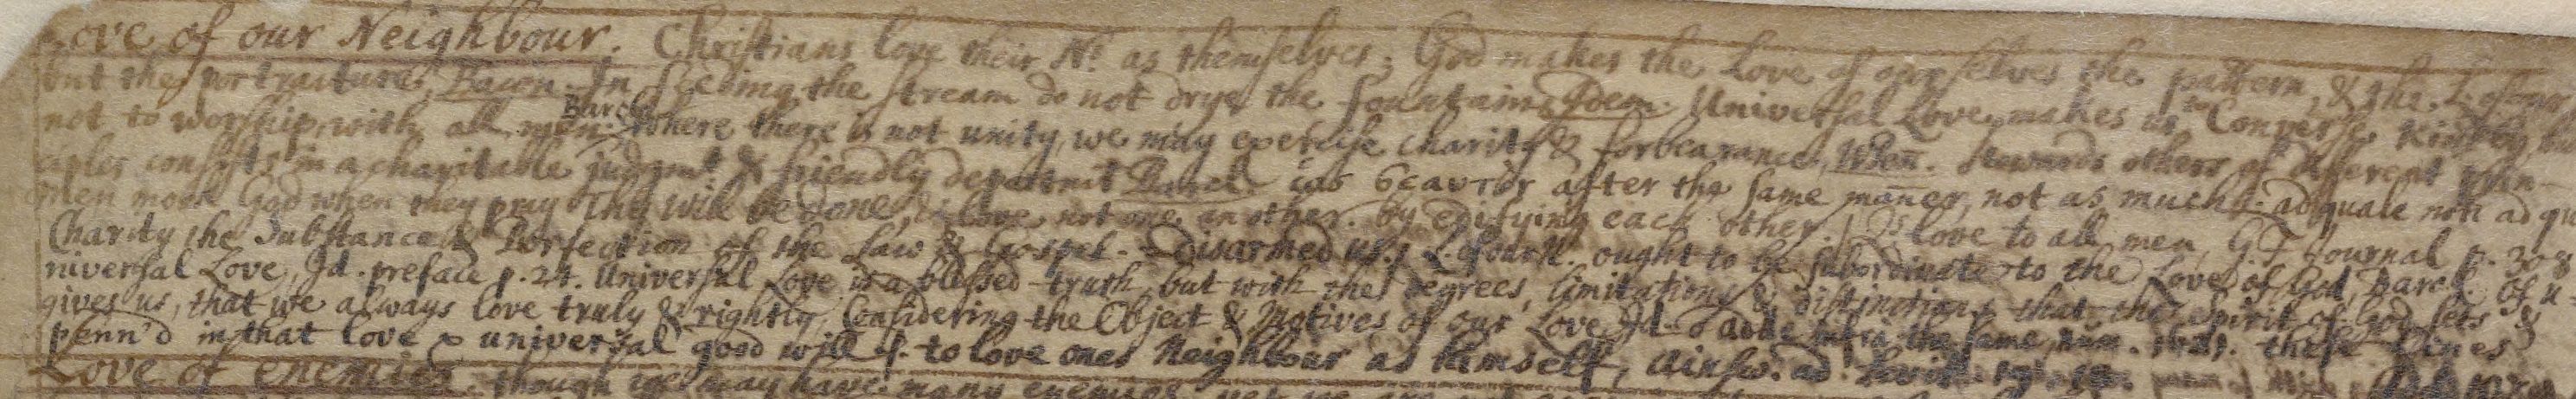 Love of our Neighbour. Christians love their Nr. as themselves; God makes the Love of ourselves the pattern, & the L. of our
but the portraiture, Bacon. In feeding the stream do not drye the fountaine Idem. Universal Love, makes us to Converse kindly, but
not to worship with all men. Barcl. Where there is not unity, we may exercise charity & forbearance, Wm Penn. towards others of different prin-
ciples consists in a charitable judgmt & friendly deportmt Barcl. ὡς ἑαυτὸν after the same maner, not as much. ad quale non ad qu
Men mock God when they pray Thy will be done, & love not one another. by edifying each other. Is love to all men, G.F. Journal p. 308
Charity the Substance & Perfection of the Law & Gospel. L. of our N. ought to be subordinate to the Love of God, Barcl. Of u
niversal Love, Id. preface p. 24. Universal Love is a blessed truth, but with the degrees, limitations & distinctions that the Spirit of God sets &
gives us, that we always love truly & rightly, Considering the Object & Motives of our Love Id. adde infra the same, num. these Lines
penn'd in that love & universal good will to love ones Neighbour as himself, Ainsw. ad Levit. 19.18.
Love of enemies. though we may have many enemies, yet we are not